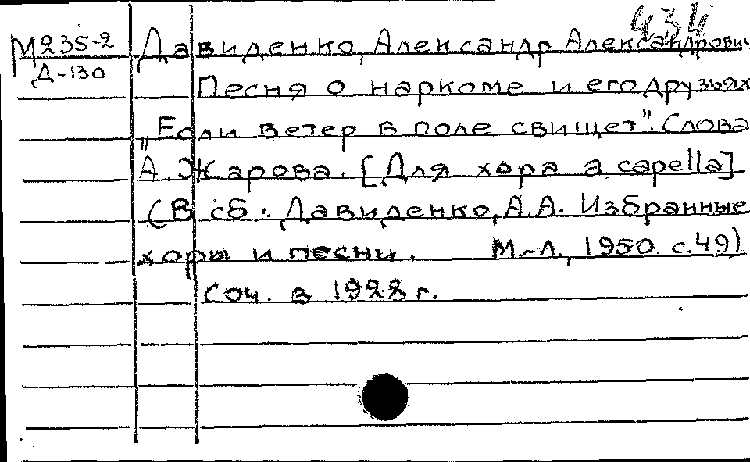 434
М235-2 Давиденко, Александр Александрович
Д-130 Песня о наркоме и его друзьях
„Если ветер в поле свищет". Слова
А. Жарова. [Для хора a capella]
(В сб. Давиденко, А.А. Избранные
хоры и песни. М.-Л., 1950. с.49)
Соч. в 1928 г.